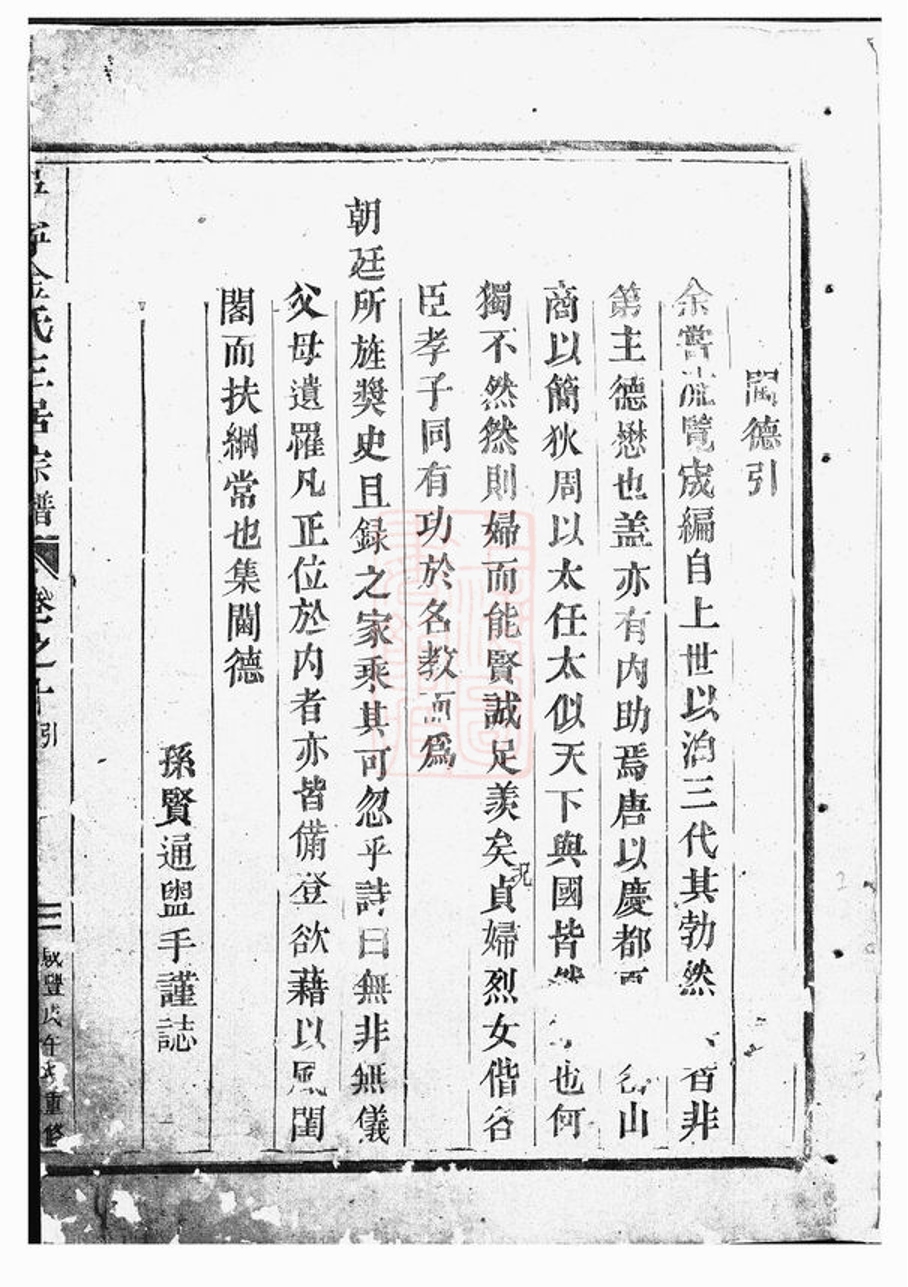 閫德引
余嘗流覽成編自上世以洎三代其勃然者非
第主德懋也盖亦有内助焉唐以慶都夏山
商以簡狄周以太任太似天下與國皆然也何
獨不然然則婦而能賢誠足羨矣况貞婦烈女偕
臣孝子同有功於名教而爲
朝廷所旌獎史且録之家乘其可忽乎詩曰無非無儀
父母遺罹凡正位於内者亦皆備登欲藉以風閨
閣而扶綱常也集閫德
孫賢通盥手謹誌
宁金氏三居宗譜 卷之十 引 三 咸豐戊午年重修